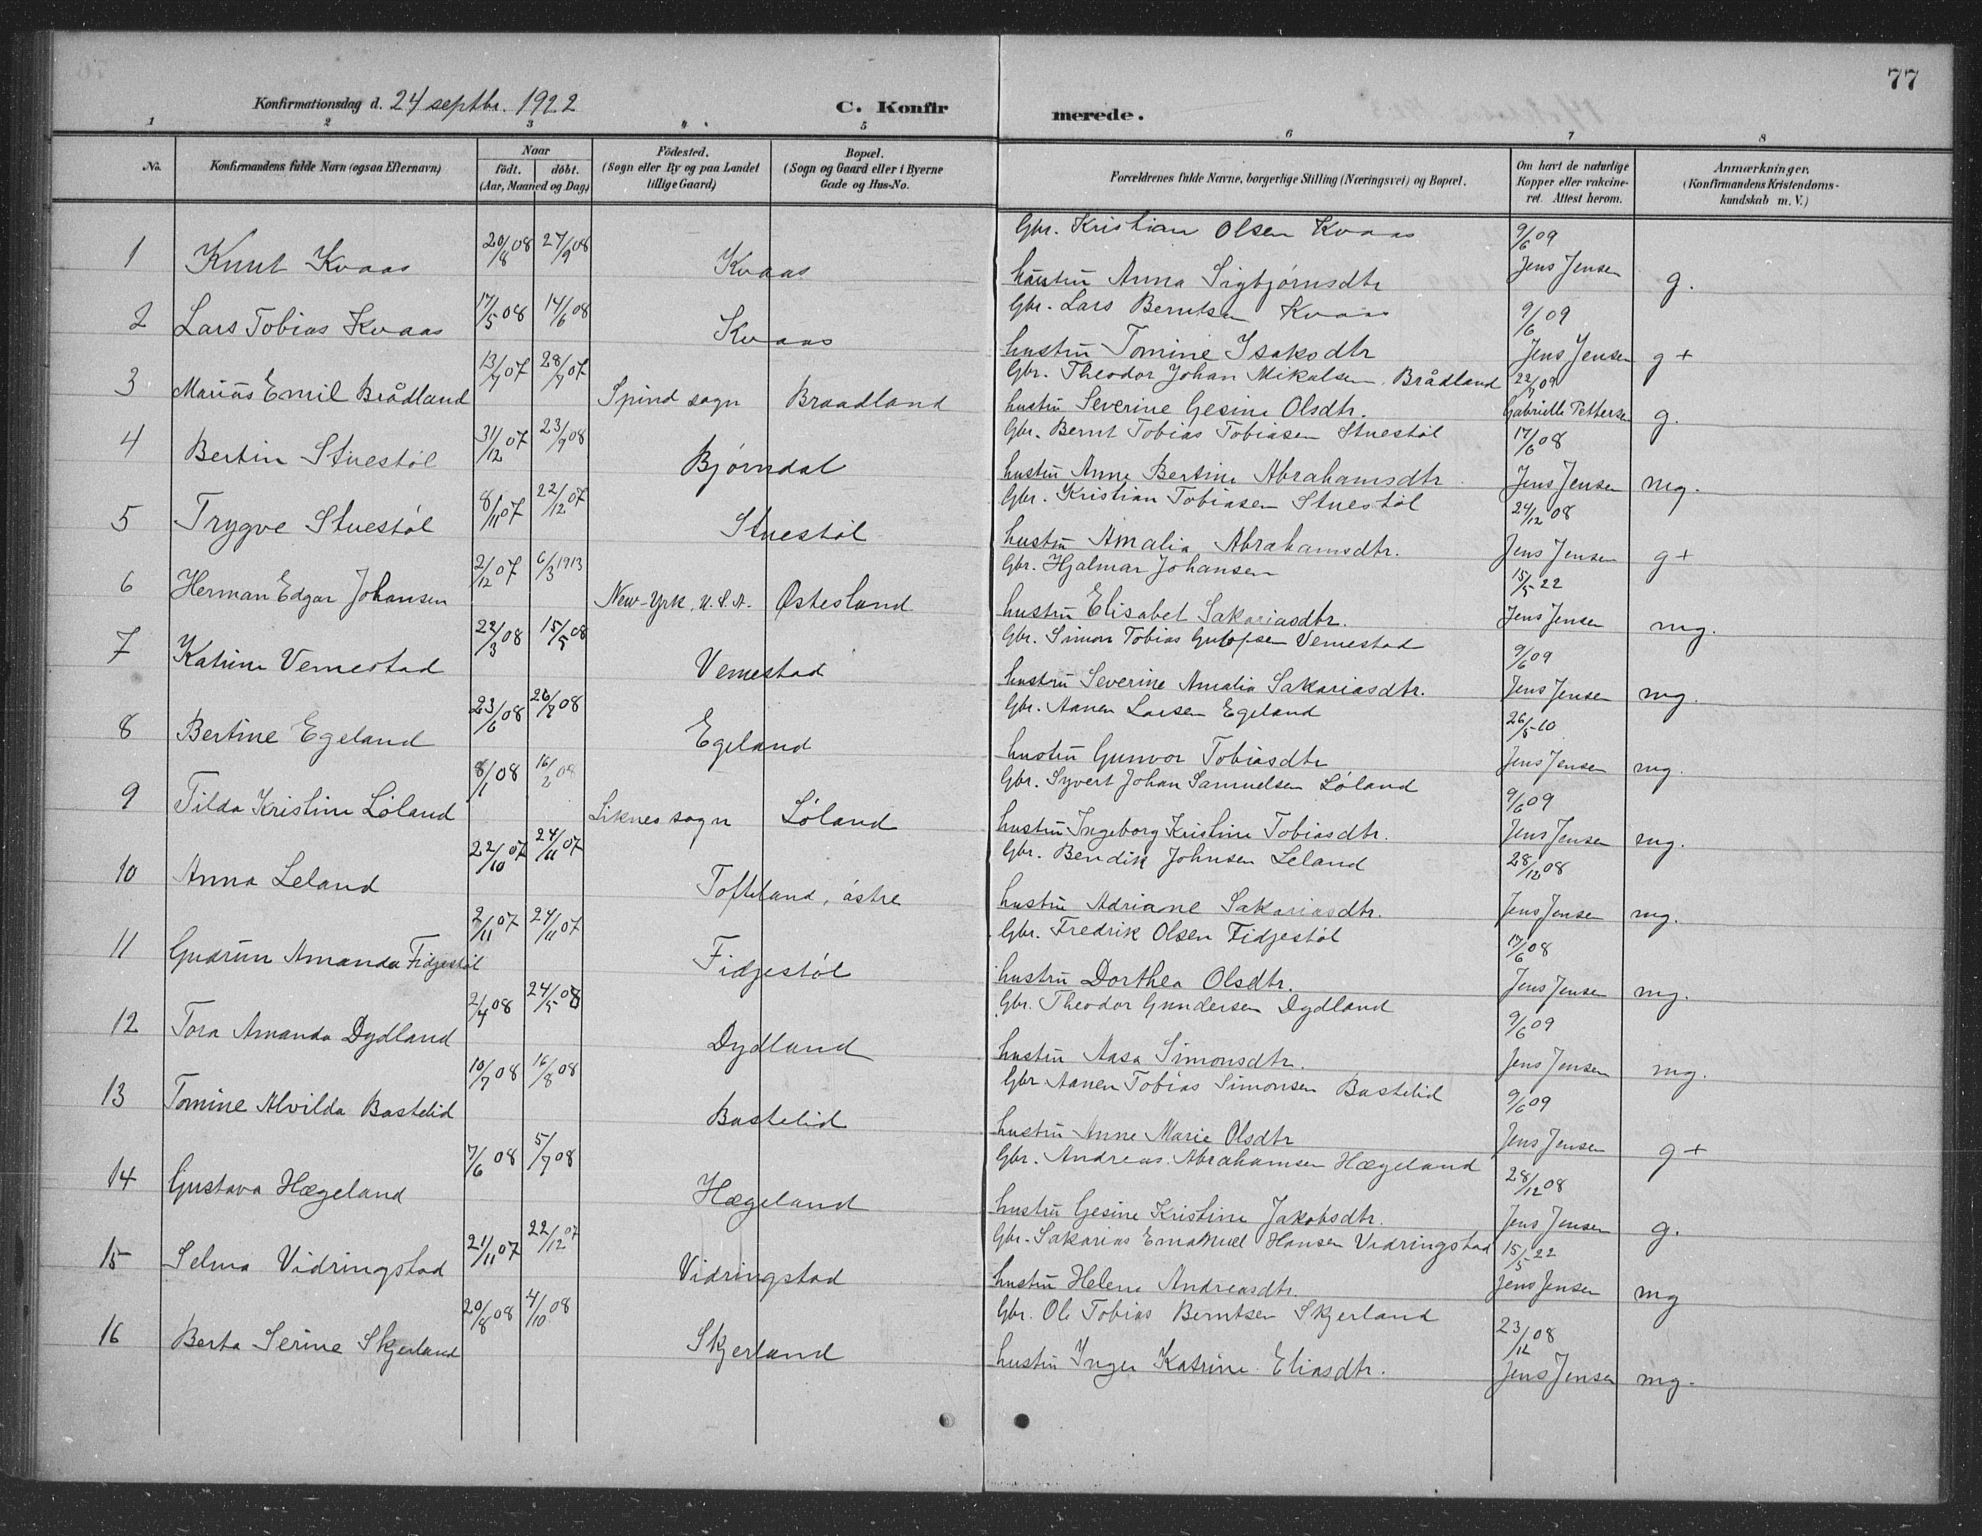 77
Konfirmationsdag d. 24 septbr. 1922 C. Konfirmerede.
1 2 3 4 5 6 7 8
No. Konfirmandens fulde Navn (ogsaa Efternavn) Naar født. døbt. (Aar, Maaned og Dag) Födested. (Sogn eller By og paa Landet tillige Gaard) Bopæl. (Sogn og Gaard eller i Byerne Gade og Hus-No. Forældrenes fulde Navne, borgerlige Stilling (Næringsvei) og Bopæl. Om havt de naturlige Kopper eller vakcineret. Attest herom. Anmærkninger. (Konfirmandens Kristendomskundskab m. V.)
1 Knut Kvaas 20/8 08 27/9 08 Kvaas Gbr. Kristian Olsen Kvaas 9/6 09
hustru Anna Sigbjørnsdtr Jens Jensen g.
2 Lars Tobias Kvaas 17/5 08 14/6 08 Kvaas Gbr. Lars Berntsen Kvaas 9/6 09
hustru Tomine Isaksdtr Jens Jensen g+
3 Marius Emil Brådland 13/7 07 28/7 07 Spind sogn Braadland Gbr. Theodor Johan Mikalsen Brådland
hustru Severine Gesine Olsdtr. Gabrielle Petterse g.
4 Bertin Stuestøl 31/12 07 23/2 08 Bjørndal Gbr. Bernt Tobias Tobiasen Stuestøl 17/6 08
hustru Anne Bertine Abrahamsdtr Jens Jensen mg.
5 Trygve Stuestøl 8/11 07 22/12 07 Stuestøl Gbr. Kristian Tobiasen Stuestøl 24/12 08
hustru Amalia Abrahamsdtr. Jens Jensen g+
6 Herman Edgar Johansen 2/12 07 6/3 1913 New-Yrk, U.S.A. Østesland Gbr. Hjalmar Johansen 15/5-22
hustru Elisabet Sakariasdtr. Jens Jensen mg.
7 Katrine Vemestad 22/3 08 15/5 08 Vemestad Gbr. Simon Tobias Vemestad 9/6 09
hustru Severine Amalia Sakariasdtr. Jens Jensen mg.
8 Bertine Egeland 23/6 08 26/7 08 Egeland Gbr. Aanen Larsen Egeland 26/5-10
hustru Gunvor Tobiasdtr Jens Jensen mg.
9 Tilda Kristine Løland 8/1 08 16/2 08 Liknes sogn Løland Gbr. Syvert Johan Samuelsen Løland 9/6 09
hustru Ingeborg Kristine Tobiasdtr. Jens Jensen mg.
10 Anna Leland 22/10 07 24/11 07 Tofteland, østre Gbr. Bendik Johnsen Leland 28/12 08
hustru Adriane Sakariasdtr. Jens Jensen mg.
11 Gudrun Amanda Fidjestøl 2/11 07 24/11 07 Fidjestøl Gbr. Fredrik Olsen Fidjestøl 17/6 08
hustru Dorthea Olsdtr. Jens Jensen mg.
12 Tora Amanda Dydland 2/4 08 24/5 08 Dydland Gbr. Theodor Gundersen Dydland 9/6 09
hustru Aasa Simonsdtr. Jens Jensen mg.
13 Tomine Alvilda Bastelid 10/7 08 16/8 08 Bastelid Gbr Aanen Tobias Simonsen Bastelid 9/6 09
hustru Anne Marie Olsdtr Jens Jensen g+
14 Gustava Hægeland 7/6 08 5/7 08 Hægeland Gbr. Andreas Abrahamsen Hægeland 28/12 08
hustru Gesine Kristine Jakobsdtr. Jens Jensen g.
15 Selma Vidringstad 21/11 07 22/12 07 Vidringstad Gbr. Sakarias Emanuel Hansen Vidringstad 15/5-22
hustru Helene Andreasdtr. Jens Jensen mg
16 Berta Serine Skjerland 20/8 08 4/10 08 Skjerland Gbr. Ole Tobias Berntsen Skjerland 23/12 08
hustru Inger Katrine Eliasdtr. Jens Jensen mg.